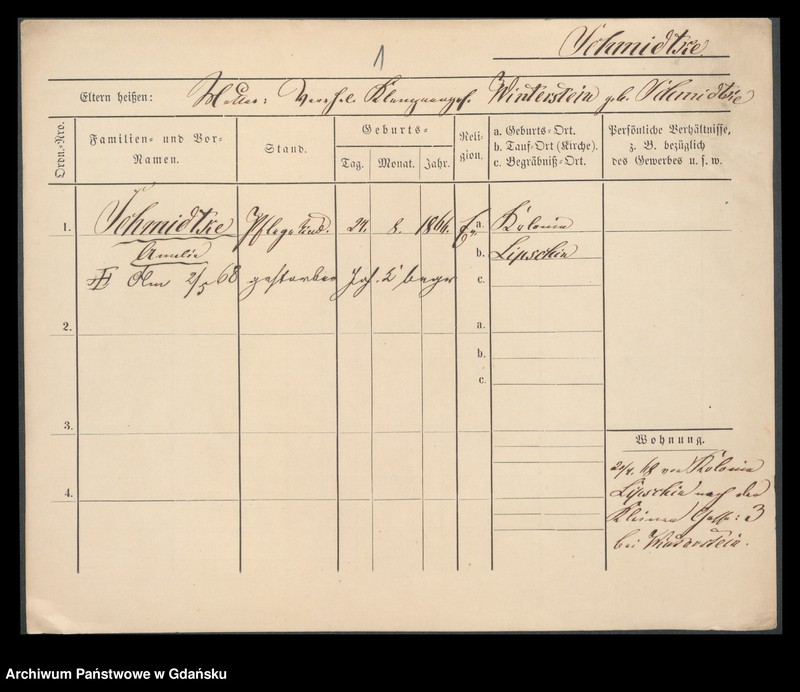 1
Schmidtke
Eltern heißen: Mutter: Winterstein geb. Schmidtke
Ordn.-Nro.
Familien- und Vor-Namen.
Stand.
Geburts-
Tag. Monat. Jahr.
Religion.
a. Geburts-Ort.
b. Tauf-Ort (Kirche).
c. Begräbniß-Ort.
Persönliche Verhältnisse,
z. B. bezüglich
des Gewerbes u. s. w.
1. Schmidtke Pflegekind. 24. 8. 1866. Ev. a. Kolonie
Amalie b. Lipschin
2/5 68 gestorben c.
2. a.
b.
c.
3.
4.
Wohnung.
68 von Kolonie
Lipschin nach der
Kleinen Gasse: 3
bei Winterstein.
Archiwum Państwowe w Gdańsku